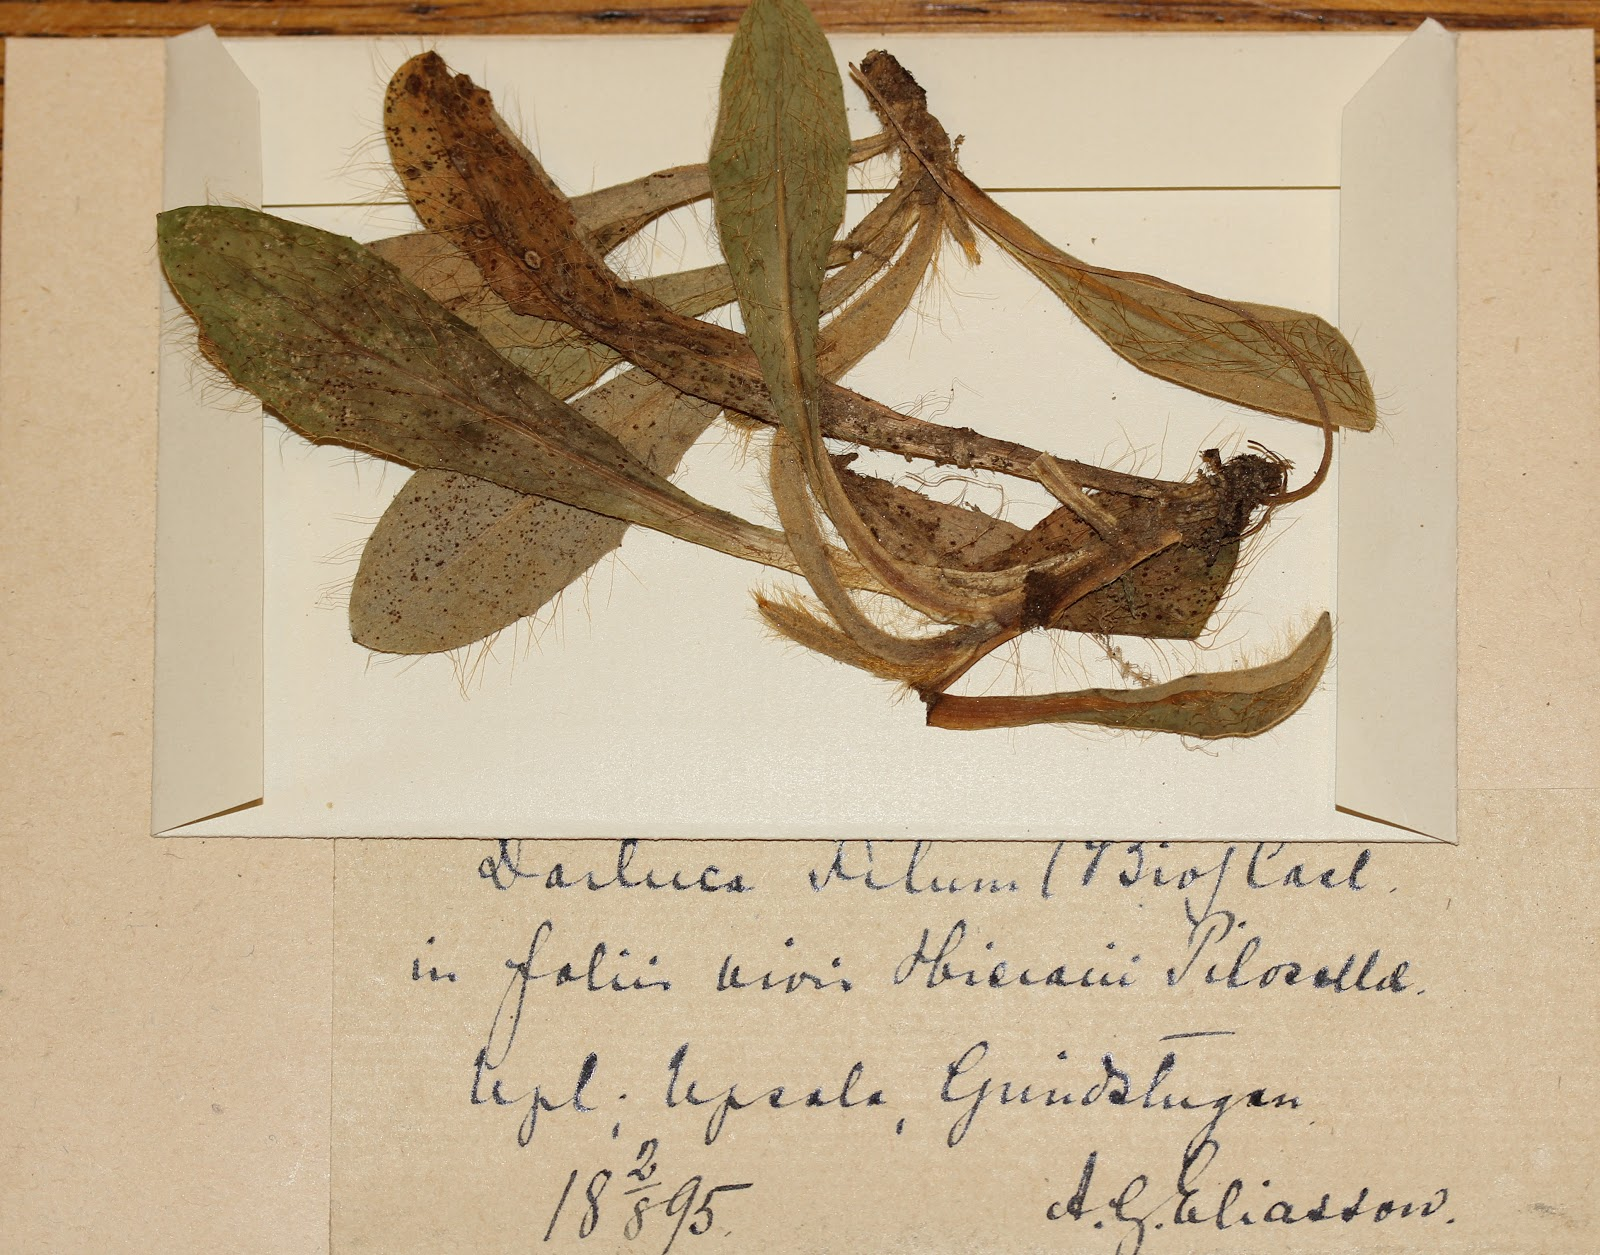 Darluca Filum (Biv) Cast.
in foliis vivis Hieracii Pilosellæ.
Upl.; Upsala, Grindstugan
18 2/8 95.
A. G. Eliasson.